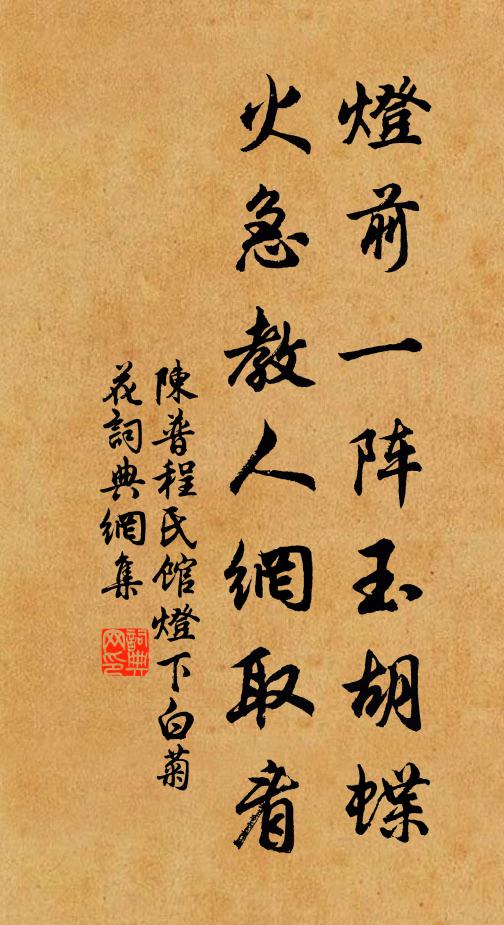 燈前一阵玉胡蝶
火急教人網取看
陳普程氏館燈下白菊
花詞典網集
詞典
网印